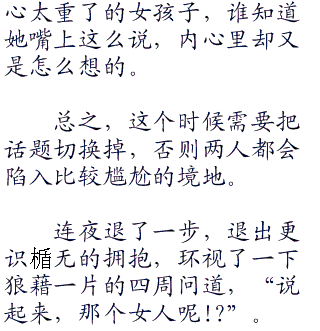 心太重了的女孩子，谁知道
她嘴上这么说，内心里却又
是怎么想的。
总之，这个时候需要把
话题切换掉，否则两人都会
陷入比较尴尬的境地。
连夜退了一步，退出更
识楯无的拥抱，环视了一下
狼藉一片的四周问道，“说
起来，那个女人呢!?”。